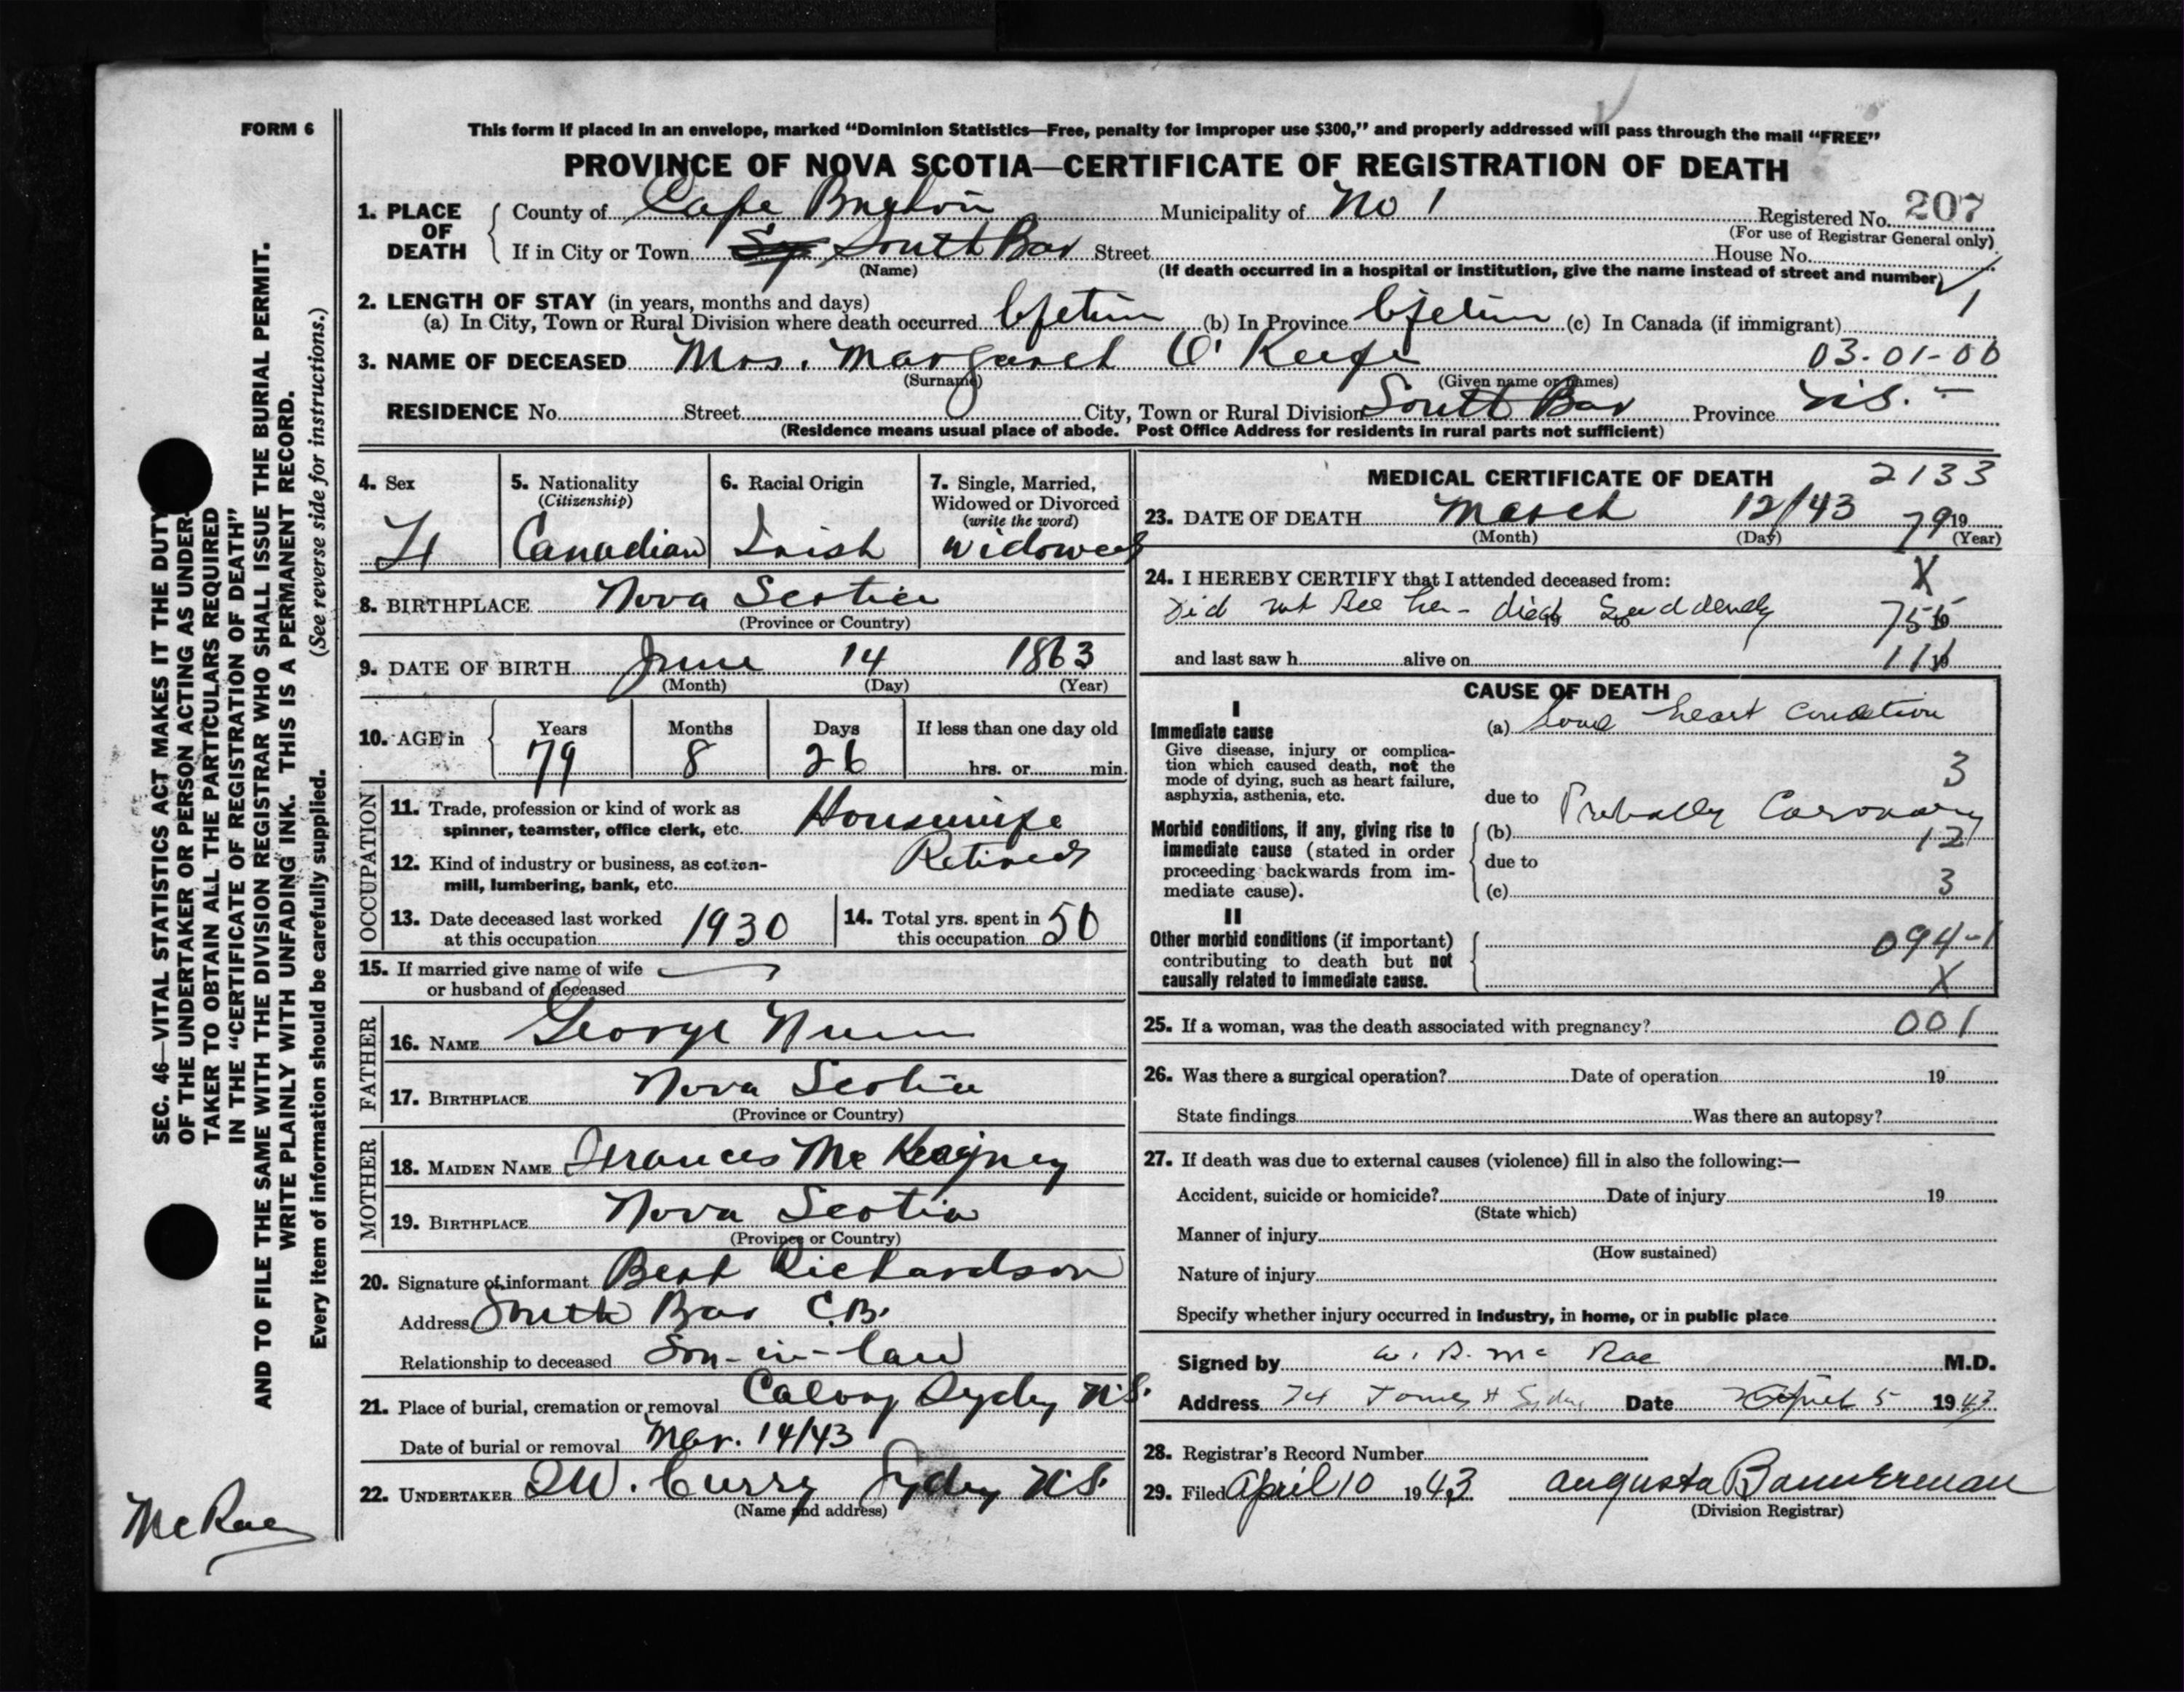 FORM 6
This form if placed in an envelope, marked "Dominion Statistics—Free, penalty for improper use $300," and properly addressed will pass through the mail "FREE"
PROVINCE OF NOVA SCOTIA—CERTIFICATE OF REGISTRATION OF DEATH
1. PLACE OF DEATH County of Cape Breton Municipality of No 1 Registered No. 207
(For use of Registrar General only)
If in City or Town South Bar Street House No.
(Name) (If death occurred in a hospital or institution, give the name instead of street and number)
2. LENGTH OF STAY (in years, months and days) 1
(a) In City, Town or Rural Division where death occurred lifetime (b) In Province lifetime (c) In Canada (if immigrant)
3. NAME OF DECEASED Mrs. Margaret O'Keefe 03-01-00
(Surname) (Given name or names)
RESIDENCE No. Street City, Town or Rural Division South Bar Province N.S.
(Residence means usual place of abode. Post Office Address for residents in rural parts not sufficient)
4. Sex F
5. Nationality
(Citizenship)
Canadian
6. Racial Origin
Irish
7. Single, Married,
Widowed or Divorced
(write the word)
widowed
8. BIRTHPLACE Nova Scotia
(Province or Country)
9. DATE OF BIRTH June 14 1863
(Month) (Day) (Year)
10. AGE in Years Months Days If less than one day old
79 8 26 hrs. or min.
OCCUPATION
11. Trade, profession or kind of work as
spinner, teamster, office clerk, etc. Housewife
12. Kind of industry or business, as cotton-
mill, lumbering, bank, etc. Retired
13. Date deceased last worked
at this occupation 1930
14. Total yrs. spent in
this occupation 50
15. If married give name of wife
or husband of deceased
FATHER
16. NAME George Nunn
17. BIRTHPLACE Nova Scotia
(Province or Country)
MOTHER
18. MAIDEN NAME Frances McKeagney
19. BIRTHPLACE Nova Scotia
(Province or Country)
20. Signature of informant Bert Richardson
Address South Bar C.B.
Relationship to deceased Son-in-law
21. Place of burial, cremation or removal Calvary Sydney N.S.
Date of burial or removal Mar. 14/43
22. UNDERTAKER Curry Sydney N.S.
(Name and address)
MEDICAL CERTIFICATE OF DEATH 2133
23. DATE OF DEATH March 12/43 79 19
(Month) (Day) (Year)
24. I HEREBY CERTIFY that I attended deceased from: X
Did not see her - died suddenly 755 19
and last saw h alive on 111 19
CAUSE OF DEATH
I
Immediate cause
Give disease, injury or complica-
tion which caused death, not the
mode of dying, such as heart failure,
asphyxia, asthenia, etc.
(a) Some heart condition
3
due to Probably Coronary
Morbid conditions, if any, giving rise to
immediate cause (stated in order
proceeding backwards from im-
mediate cause).
(b) 12
due to
(c) 3
II
Other morbid conditions (if important)
contributing to death but not
causally related to immediate cause.
094-1
X
25. If a woman, was the death associated with pregnancy? 001
26. Was there a surgical operation? Date of operation 19
State findings Was there an autopsy?
27. If death was due to external causes (violence) fill in also the following:—
Accident, suicide or homicide? Date of injury 19
(State which)
Manner of injury
(How sustained)
Nature of injury
Specify whether injury occurred in industry, in home, or in public place
Signed by W. R. McRae M.D.
Address 74 Sydney Date April 5 1943
28. Registrar's Record Number
29. Filed April 10 1943 Augusta Bannerman
(Division Registrar)
SEC. 46—VITAL STATISTICS ACT MAKES IT THE DUTY
OF THE UNDERTAKER OR PERSON ACTING AS UNDER-
TAKER TO OBTAIN ALL THE PARTICULARS REQUIRED
IN THE "CERTIFICATE OF REGISTRATION OF DEATH"
AND TO FILE THE SAME WITH THE DIVISION REGISTRAR WHO SHALL ISSUE THE BURIAL PERMIT.
WRITE PLAINLY WITH UNFADING INK. THIS IS A PERMANENT RECORD.
Every item of information should be carefully supplied. (See reverse side for instructions.)
McRae